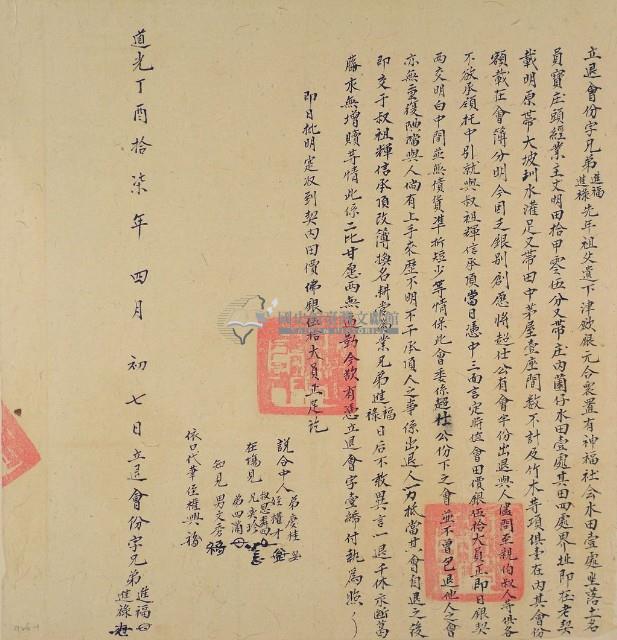 立退會份字兄弟進福進祿先年祖父遺下津欽銀元合衆置有神福社會水田壹處坐落土名
員寶庄頭經業主丈明田拾甲零伍分又帶庄內園仔水田壹處其田四處界址即在老契
載明原帶大坡圳水灌足又帶田中茅屋壹座間數不計及竹木等項俱壹在內其會份
額載在會簿分明今因乏銀別創應將超仕公有會字份出退與人儘問至親伯叔人等俱各
不欲承領托中引就與叔祖輝信承頂當日憑中三面言定時值會田價銀伍拾大員正即日銀契
兩交明白中間並無債貨準折短少等情保此會委係超仕公份下之會並不曾包退他人之會
亦無重複 與人倘有上手來歷不明不干承頂人之事係出退人一力抵當其會自退之後
即交于叔祖輝信承頂改簿換名耕 為業兄弟進福進祿日後不敢異言一退千休永斷葛
藤永無增贖等情此係二比甘愿兩無 勒今欲有憑立退會字壹紙付執為照
即日批明寔收到契內田價佛銀伍拾大員正足訖
說合中人 弟慶桂
侄禮才
在塲見 叔恩壽
兄奕珍
弟四滿
知見 男文秀
依口代筆侄權興
道光丁酉拾柒年四月初七日立退會份字兄弟進福進祿
國史館臺灣文獻館
TAIWAN HISTORICA